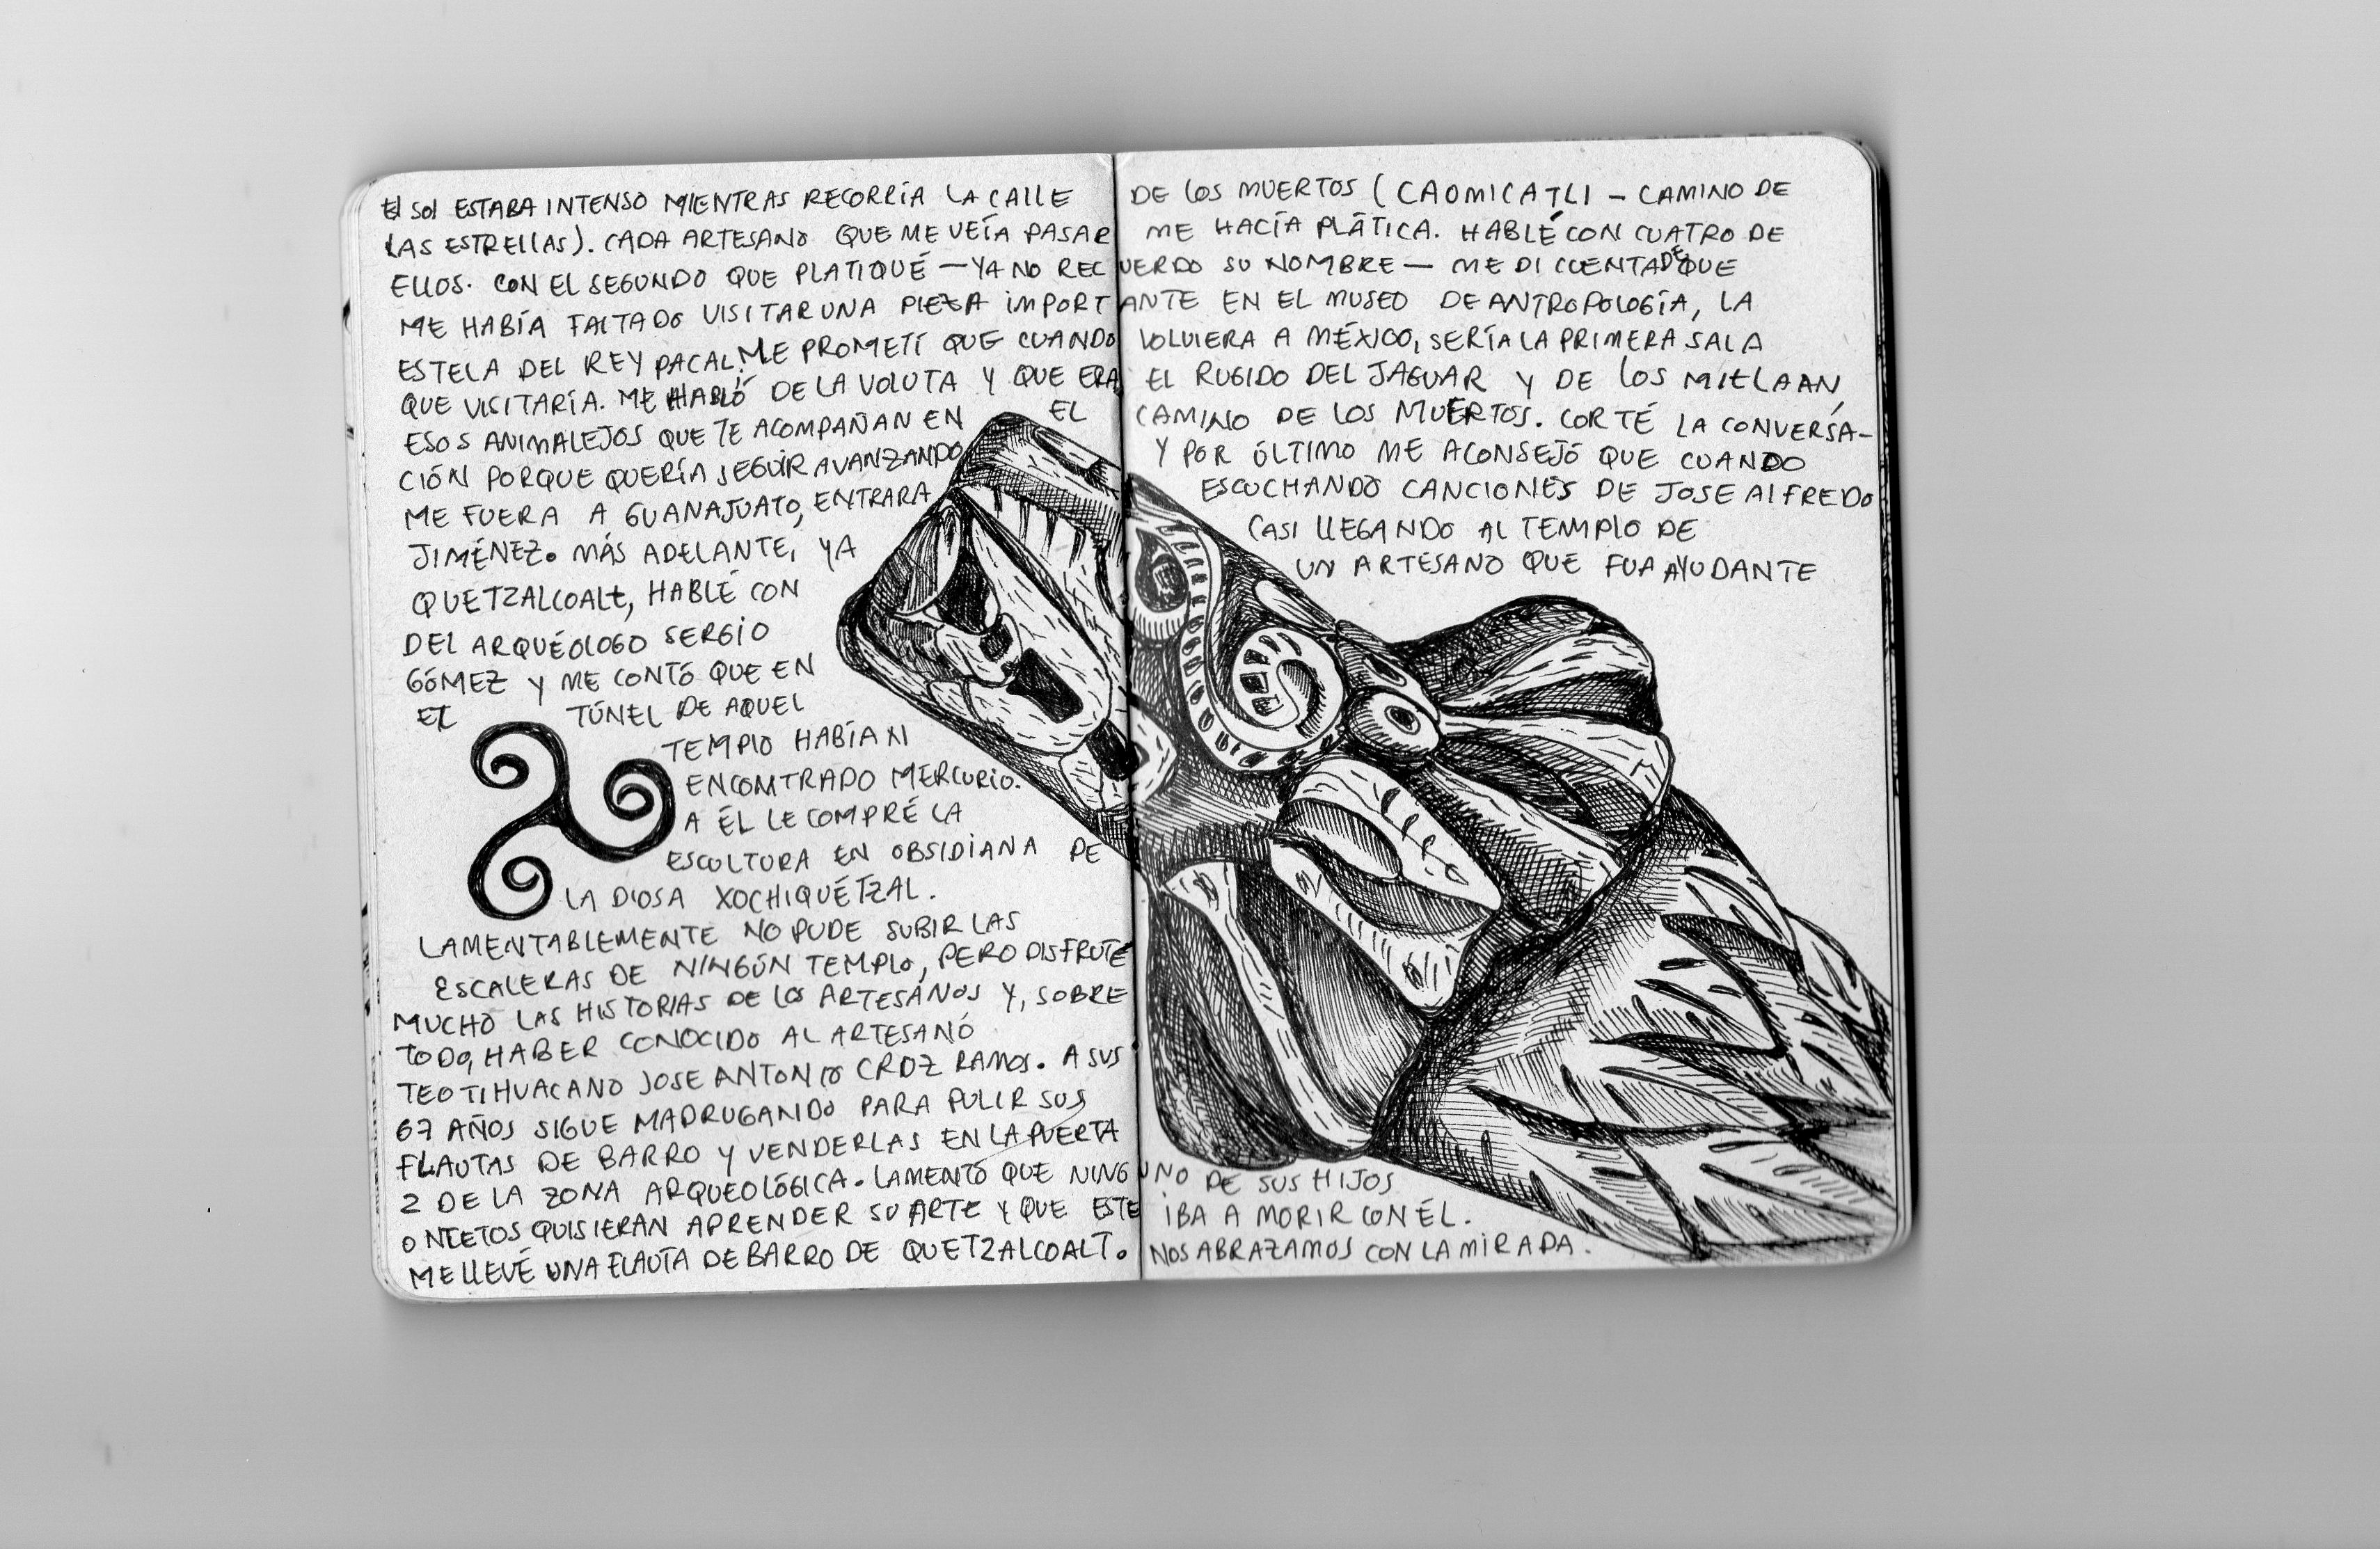 El sol ESTABA INTENSO MIENTRAS RECORRÍA LA CALLE DE LOS MUERTOS (CAOMICATLI – CAMINO DE
LAS ESTRELLAS). CADA ARTESANO QUE ME VEÍA PASAR ME HACÍA PLÁTICA. HABLÉ CON CUATRO DE
ELLOS. CON EL SEGUNDO QUE PLATIQUÉ — YA NO RECUERDO SU NOMBRE — ME DI CUENTA DE QUE
ME HABÍA FALTADO VISITAR UNA PIEZA IMPORTANTE EN EL MUSEO DE ANTROPOLOGÍA, LA
ESTELA DEL REY PACAL. ME PROMETÍ QUE CUANDO VOLVIERA A MÉXICO, SERÍA LA PRIMERA SALA
QUE VISITARÍA. ME HABLÓ DE LA VOLUTA Y QUE ERA EL RUGIDO DEL JAGUAR Y DE LOS MITLAAN,
ESOS ANIMALEJOS QUE TE ACOMPAÑAN EN EL CAMINO DE LOS MUERTOS. CORTÉ LA CONVERSA-
CIÓN PORQUE QUERÍA SEGUIR AVANZANDO Y POR ÚLTIMO ME ACONSEJÓ QUE CUANDO
ME FUERA A GUANAJUATO, ENTRARA ESCUCHANDO CANCIONES DE JOSE ALFREDO
JIMÉNEZ. MÁS ADELANTE, YA CASI LLEGANDO AL TEMPLO DE
QUETZALCOALt, HABLÉ CON UN ARTESANO QUE FUA AYUDANTE
DEL ARQUÉOLOGO SERGIO
GÓMEZ Y ME CONTÓ QUE EN
EL TÚNEL DE AQUEL
TEMPLO HABÍAN
ENCOMTRADO MERCURIO.
A ÉL LE COMPRÉ LA
ESCULTURA EN OBSIDIANA DE
LA DIOSA XOCHIQUÉTZAL.
LAMENTABLEMENTE NO PUDE SUBIR LAS
ESCALERAS DE NINGÚN TEMPLO, PERO DISFRUTÉ
MUCHO LAS HISTORIAS DE LOS ARTESANOS Y, SOBRE
TODO, HABER CONOCIDO AL ARTESANO
TEOTIHUACANO JOSE ANTONIO CRUZ RAMOS. A SUS
67 AÑOS SIGUE MADRUGANDO PARA PULIR SUS
FLAUTAS DE BARRO Y VENDERLAS EN LA PUERTA
2 DE LA ZONA ARQUEOLÓGICA. LAMENTÓ QUE NINGUNO DE SUS HIJOS
O NIETOS QUISIERAN APRENDER SU ARTE Y QUE ESTE IBA A MORIR CON ÉL.
ME LLEVÉ UNA FLAUTA DE BARRO DE QUETZALCOALT. NOS ABRAZAMOS CON LA MIRADA.